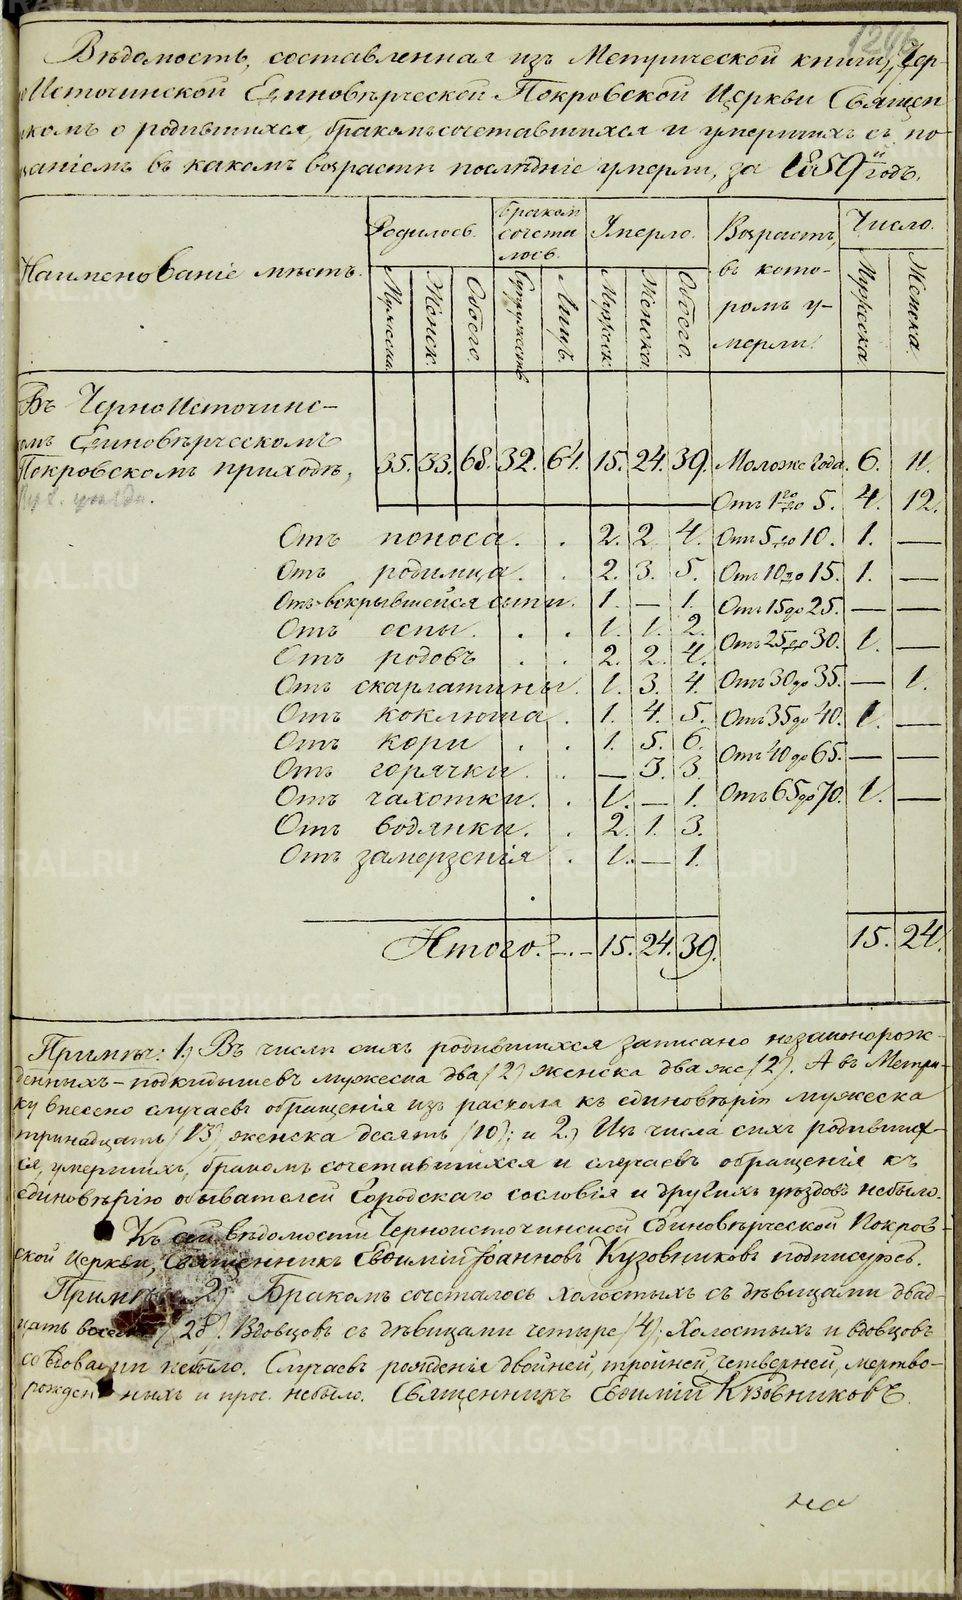 1206
Вѣдомость, составленная изъ Метрической книги, Чер-
Источинской Единовѣрческой Покровской Церкви Священ
комъ о родившихся, бракомъсочетавшихся и умершихъ съ по-
заніемъ въ какомъ возрастѣ послѣдніе умерли, за 1859й годъ.
Наименованіе мѣстъ.
Родилось.
Бракомъ сочеталось.
Умерло.
Возрастъ, въ которомъ умерли.
Число.
Мужеска. Женск. Обоего. Супружествъ Лицъ. Мужеск. Женска. Обоего. Мужеска. Женска.
Въ Черноисточинс-
омъ Единовѣрческомъ
Покровскомъ приходѣ, 35. 33. 68. 32. 64. 15. 24. 39. Моложе года. 6. 11.
Отъ 1го до 5. 4. 12.
Отъ поноса. . 2. 2. 4. Отъ 5 до 10. 1. —
Отъ родимца. . 2. 3. 5. Отъ 10 до 15. 1. —
Отъ вскрывшейся сыпи. 1. — 1. Отъ 15 до 25. — —
Отъ оспы. . . 1. 1. 2. Отъ 25 до 30. 1. —
Отъ родовъ . . 2. 2. 4.
Отъ скарлатины. 1. 3. 4. Отъ 30 до 35. — 1.
Отъ коклюша . 1. 4. 5. Отъ 35 до 40. 1. —
Отъ кори . . 1. 5. 6. Отъ 40 до 65. — —
Отъ горячки. . — 3. 3.
Отъ чахотки. . 1. — 1. Отъ 65 до 70. 1. —
Отъ водянки. . 2. 1. 3.
Отъ замерзенія . 1. — 1.
Итого. – . – 15. 24. 39. 15. 24.
Примѣч: 1.) Въ числѣ сихъ родившихся записано незаконорож-
денныхъ – подкидышевъ мужеска два /2/ женска два же /2/. А въ Метри-
ку внесено случаевъ обращенія изъ раскола къ единовѣрію мужеска
тринадцать /13/ женска десять /10/; и 2.) Изъ числа сихъ родивших-
ся, умершихъ, бракомъ сочетавшихся и случаевъ обращенія къ
единовѣрію обывателей Городскаго сословія и другихъ уѣздовъ небыло.
Къ сей вѣдомости Черноисточинской Единовѣрческой Покров-
ской Церкви, Священникъ Евѳимій Іоанновъ Кузовниковъ подписуюсь.
Примѣч 2) Бракомъ сочеталось холостыхъ съ дѣвицами двад-
цать восемь /28/. Вдовцовъ съ дѣвицами четыре /4/; Холостыхъ и вдовцовъ
со вдовами небыло. Случаевъ рожденія двойней, тройней, четверней, мертво-
рожденныхъ и проч. небыло. Священникъ Евѳимій Кузовниковъ.
на
METRIKI.GASO-URAL.RU